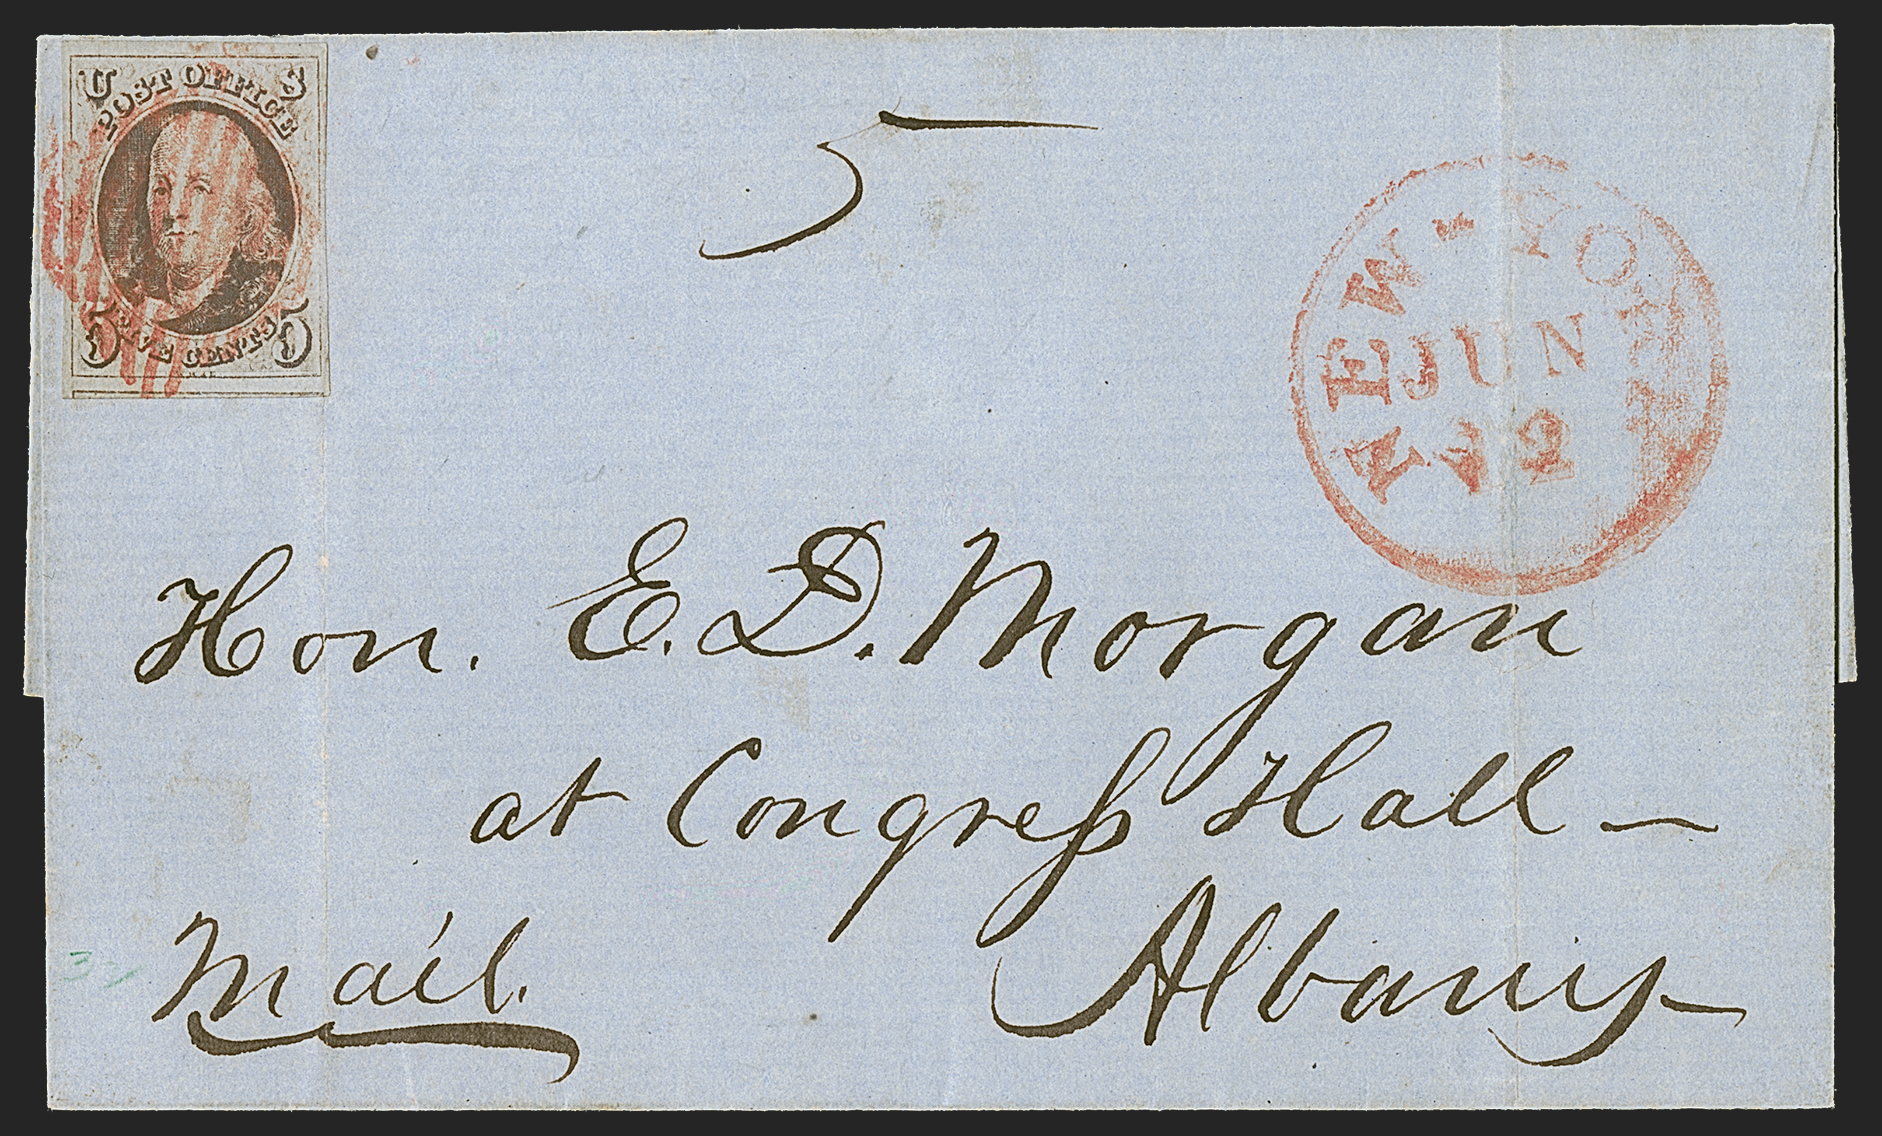 U S
POST OFFICE
5 FIVE CENTS 5
5
NEW-YORK
JUN
12
Hon. E. D. Morgan
at Congress Hall —
Albany —
Mail.